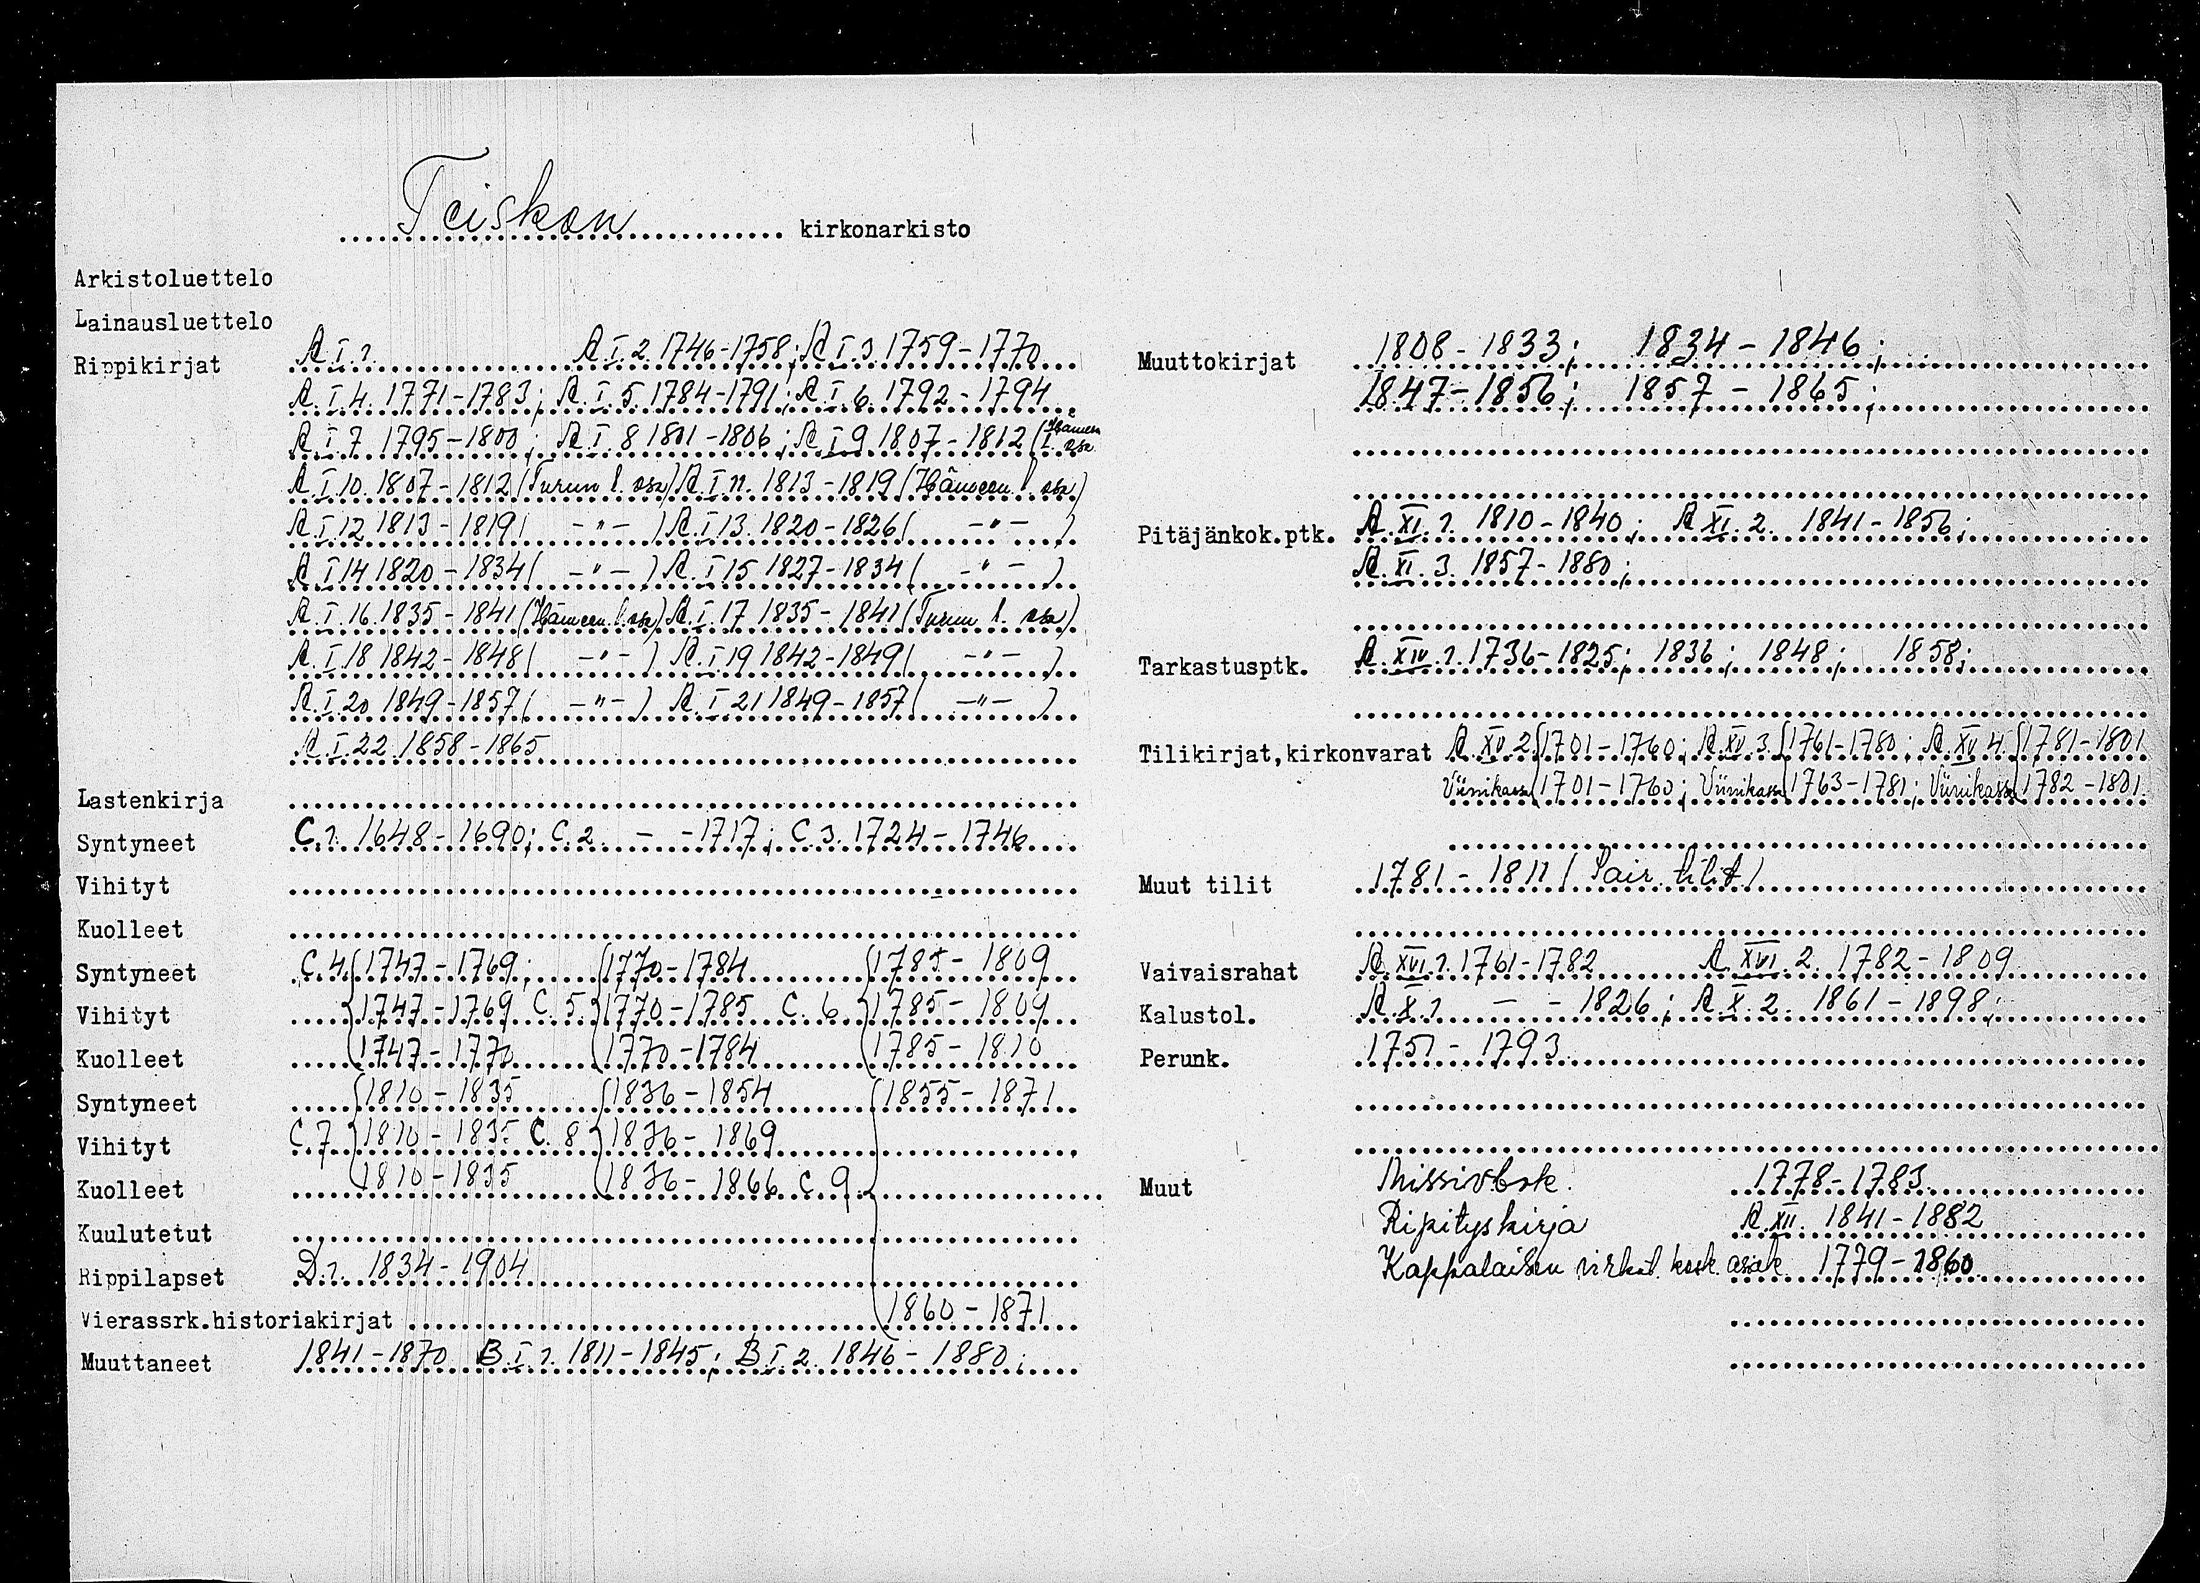 Teiskon kirkonarkisto
Arkistoluettelo
Lainausluettelo
Rippikirjat A.I.1. A.I.2. 1746-1758; A.I.3. 1759-1770
A.I.4. 1771-1783; A.I.5. 1784-1791; A.I.6. 1792-1794.
A.I.7 1795-1800; A.I.8 1801-1806; A.I.9 1807-1812 (Hämeen l. osa
A.I.10. 1807-1812 (Turun l. osa) A.I.11. 1813-1819 (Hämeen l. osa)
A.I.12 1813-1819 ( -"- ) A.I.13. 1820-1826 ( -"- )
A.I.14 1820-1834 ( -"- ) A.I.15 1827-1834 ( -"- )
A.I.16. 1835-1841 (Hämeen l. osa) A.I.17 1835-1841 (Turun l. osa)
A.I.18 1842-1848 ( -"- ) A.I.19 1842-1849 ( -"- )
A.I.20 1849-1857 ( -"- ) A.I.21 1849-1857 ( -"- )
A.I.22. 1858-1865
Lastenkirja
Syntyneet C.1. 1648-1690; C.2 - -1717; C.3. 1724-1746
Vihityt
Kuolleet
Syntyneet C.4. 1747-1769; 1770-1784 1785-1809
Vihityt 1747-1769 C.5. 1770-1785 C.6. 1785-1809
Kuolleet 1747-1770 1770-1784 1785-1810
Syntyneet 1810-1835 1836-1854 1855-1871
Vihityt C.7 1810-1835 C.8 1836-1869
Kuolleet 1810-1835 1836-1866 C.9.
Kuulutetut
Rippilapset D.1. 1834-1904
Vierassrk.historiakirjat 1860-1871
Muuttaneet 1841-1870 B.I.1. 1811-1845; B.I.2. 1846-1880;
Muuttokirjat 1808-1833; 1834-1846;
1847-1856; 1857-1865;
Pitäjänkok.ptk. A.XI.1. 1810-1840; A.XI.2. 1841-1856;
A.XI.3. 1857-1880;
Tarkastusptk. A.XIV.1. 1736-1825; 1836; 1848; 1858;
Tilikirjat,kirkonvarat A.XV.2. 1701-1760; A.XV.3. 1761-1780; A.XV.4. 1781-1801
Viinikassa 1701-1760; Viinikassa 1763-1781; Viinikassa 1782-1801.
Muut tilit 1781-1811 (Sair. tilit)
Vaivaisrahat A.XVI.1. 1761-1782 A.XVI.2. 1782-1809
Kalustol. A.X.1 - - 1826; A.X.2. 1861-1898;
Perunk. 1751-1793
Muut Missivbok. 1778-1783
Ripityskirja A.XII. 1841-1882
Kappalaisen virkat. kosk. asiak. 1779-1860